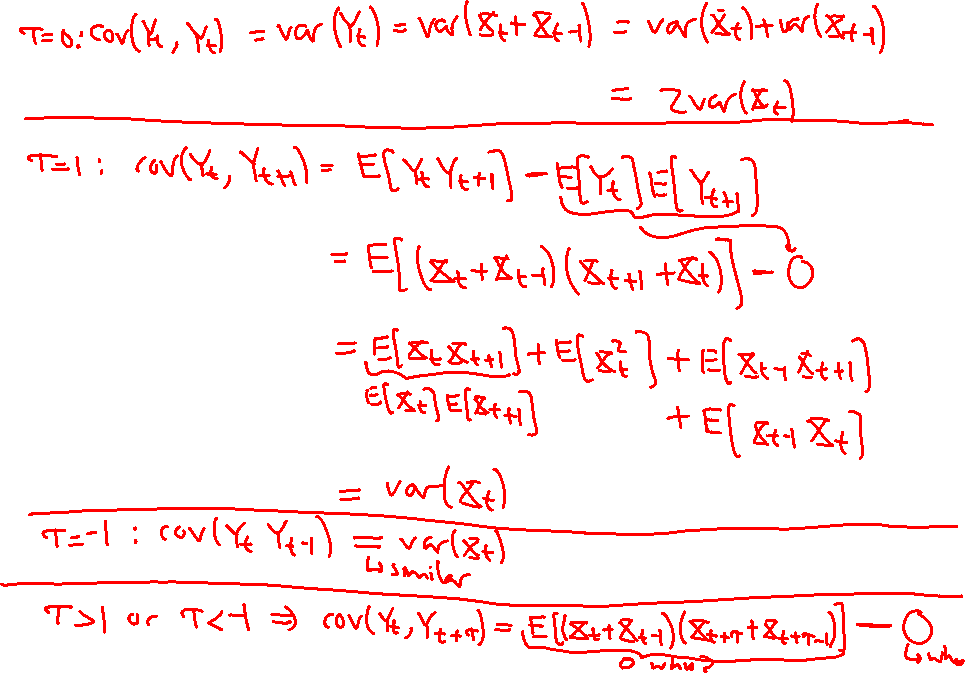 τ=0: cov(Yt, Yt) = var(Yt) = var(Xt+Xt-1) = var(Xt)+var(Xt-1)
= 2var(Xt)
τ=1: cov(Yt, Yt+1) = E[Yt Yt+1] - E[Yt]E[Yt+1]
= E[(Xt+Xt-1)(Xt+1+Xt)] - 0
= E[Xt Xt+1] + E[Xt²] + E[Xt-1 Xt+1]
E[Xt]E[Xt+1] + E[Xt-1 Xt]
= var(Xt)
τ=-1: cov(Yt Yt-1) = var(Xt)
↳ similar
τ>1 or τ<-1 ⇒ cov(Yt, Yt+τ) = E[(Xt+Xt-1)(Xt+τ+Xt+τ-1)] - 0
0 why? ↳